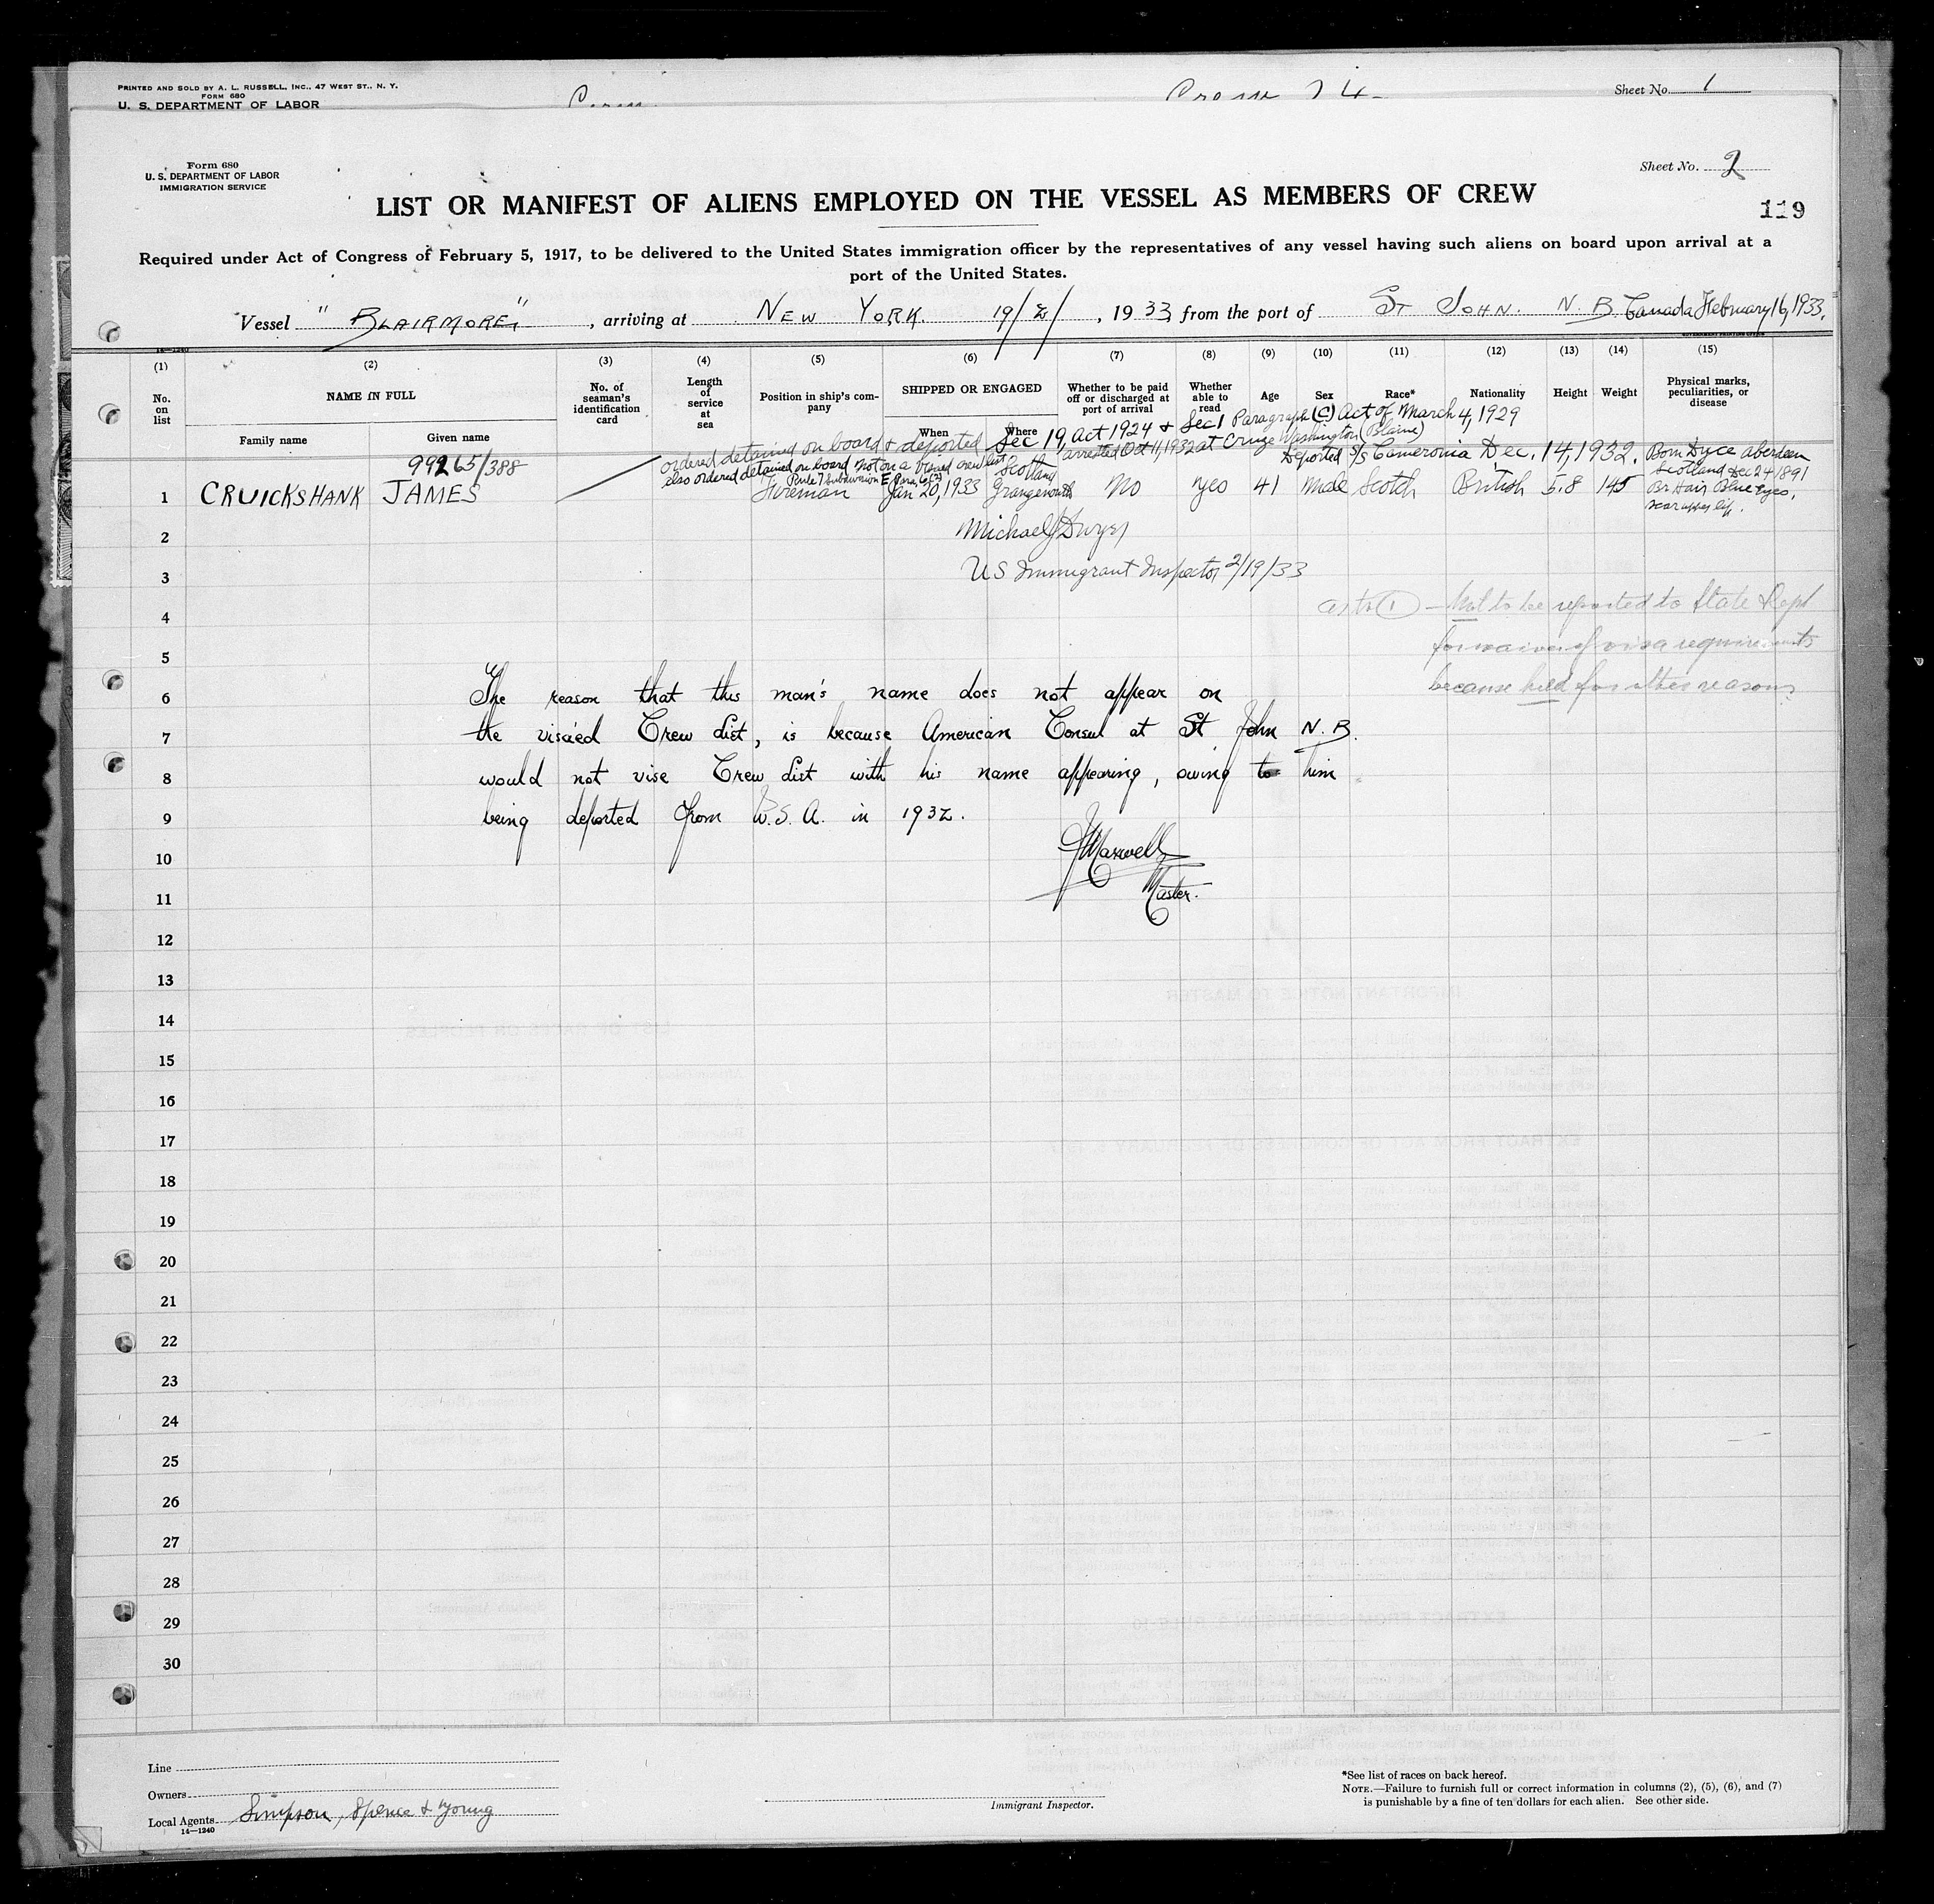 PRINTED AND SOLD BY A. L. RUSSELL, INC., 47 WEST ST., N. Y.
FORM 680
U. S. DEPARTMENT OF LABOR
Sheet No. 1
Form 680
U. S. DEPARTMENT OF LABOR
IMMIGRATION SERVICE
Sheet No. 2
LIST OR MANIFEST OF ALIENS EMPLOYED ON THE VESSEL AS MEMBERS OF CREW
119
Required under Act of Congress of February 5, 1917, to be delivered to the United States immigration officer by the representatives of any vessel having such aliens on board upon arrival at a
port of the United States.
Vessel "BLAIRMORE", arriving at NEW YORK 19/2/, 1933, from the port of ST JOHN. N. B. Canada February 16, 1933.
14-1240
(1) (2) (3) (4) (5) (6) (7) (8) (9) (10) (11) (12) (13) (14) (15)
No. on list
NAME IN FULL
Family name Given name
No. of seaman's identification card
Length of service at sea
Position in ship's company
SHIPPED OR ENGAGED
When Where
Whether to be paid off or discharged at port of arrival
Whether able to read
Age
Sex
Race*
Nationality
Height
Weight
Physical marks, peculiarities, or disease
ordered detained on board & deported Sec 19, Act 1924 & Sec 1 Paragraph (C) Act of March 4, 1929
arrested Oct 11, 1932 at Washington (Blaine)
Deported S/S Cameronia Dec. 14, 1932.
also ordered detained on board not on a visaed crew list
Rule 7 Subdivision E Para 6
99265/388
1 CRUICKSHANK JAMES Fireman Jan 20, 1933 Scotland Grangemouth No yes 41 male Scotch British 5.8 145
Born Dyce aberdeen
Scotland Dec 24 1891
Br Hair Blue eyes.
scar upper lip.
2 Michael J Dwyer
3 US Immigrant Inspector 2/19/33
4 as to (1) — Not to be reported to State Dept
5 for waiver of visa requirements
because held for other reasons
6 The reason that this man's name does not appear on
7 the viséed Crew List, is because American Consul at St John N. B.
8 would not vise Crew List with his name appearing, owing to him
9 being deported from U.S.A. in 1932.
10 J Maxwell
11 Master.
12
13
14
15
16
17
18
19
20
21
22
23
24
25
26
27
28
29
30
Line
Owners
Local Agents Simpson, Spence & Young
14—1240
Immigrant Inspector.
*See list of races on back hereof.
NOTE.—Failure to furnish full or correct information in columns (2), (5), (6), and (7)
is punishable by a fine of ten dollars for each alien. See other side.